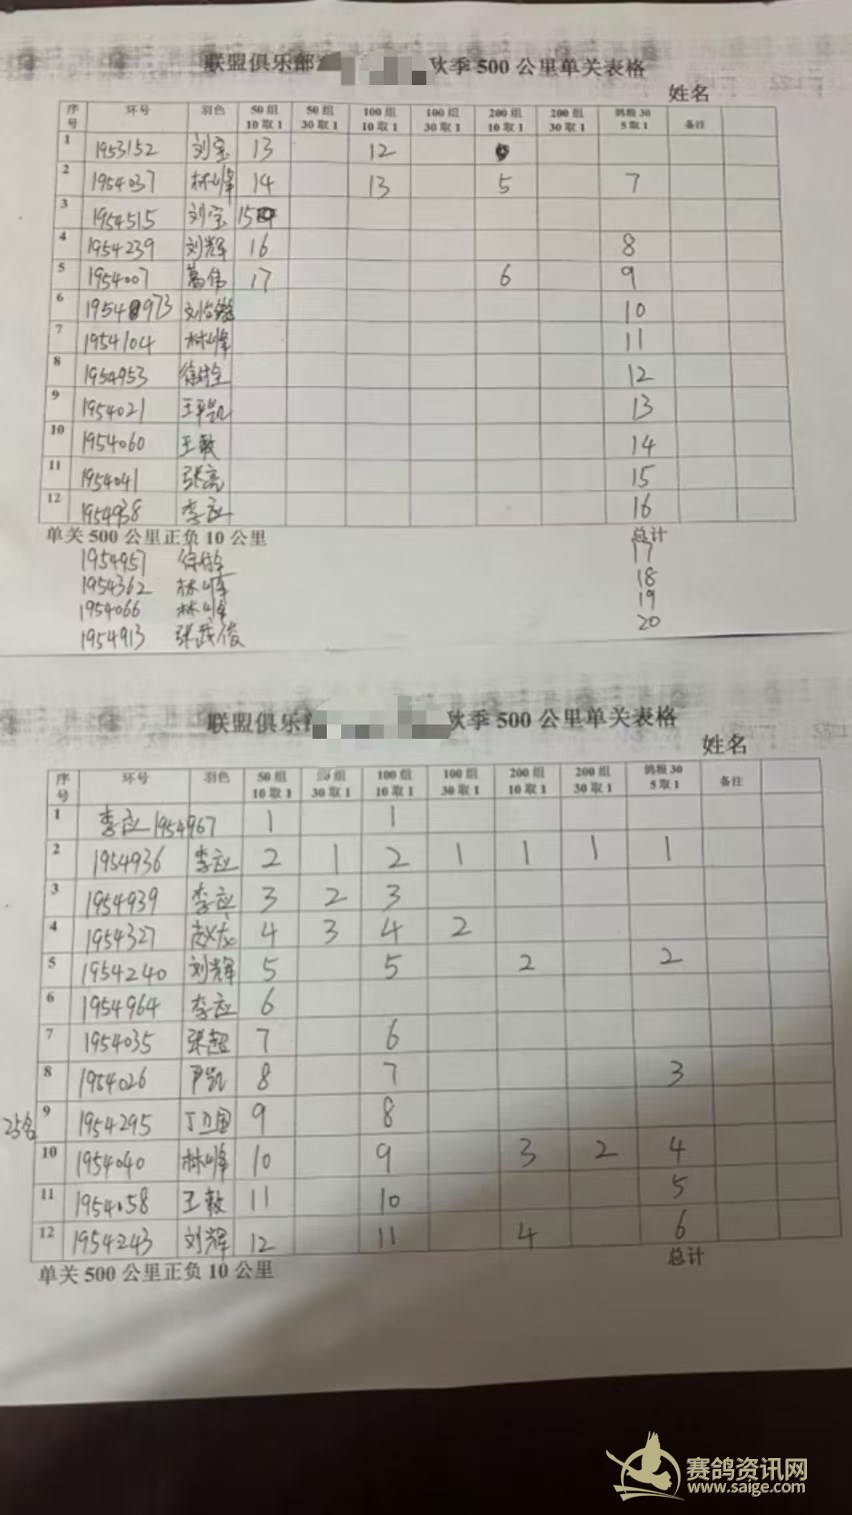 联盟俱乐部 秋季500公里单关表格
姓名
序号 环号 羽色 50组10取1 50组30取1 100组10取1 100组30取1 200组10取1 200组30取1 鸽粮30 5取1 备注
1 1953152 刘宝 13 12
2 1954037 林峰 14 13 5 7
3 1954515 刘宝 15
4 1954239 刘辉 16 8
5 1954007 葛伟 17 6 9
6 1954973 10
7 1954104 林峰 11
8 1954953 12
9 1954021 13
10 1954060 王敏 14
11 1954041 张亮 15
12 1954938 李应 16
单关500公里正负10公里 总计
1954957 17
1954362 林峰 18
1954066 林峰 19
1954913 张武俊 20
联盟俱乐 秋季500公里单关表格
姓名
序号 环号 羽色 50组10取1 50组30取1 100组10取1 100组30取1 200组10取1 200组30取1 鸽粮30 5取1 备注
1 李应 1954967 1 1
2 1954936 李应 2 1 2 1 1 1 1
3 1954939 李应 3 2 3
4 1954327 赵龙 4 3 4 2
5 1954240 刘辉 5 5 2 2
6 1954964 李应 6
7 1954035 张超 7 6
8 1954026 尹凯 8 7 3
25名 9 1954295 丁卫国 9 8
10 1954040 林峰 10 9 3 2 4
11 1954058 王敏 11 10 5
12 1954243 刘辉 12 11 4 6
单关500公里正负10公里 总计
赛鸽资讯网
www.saige.com